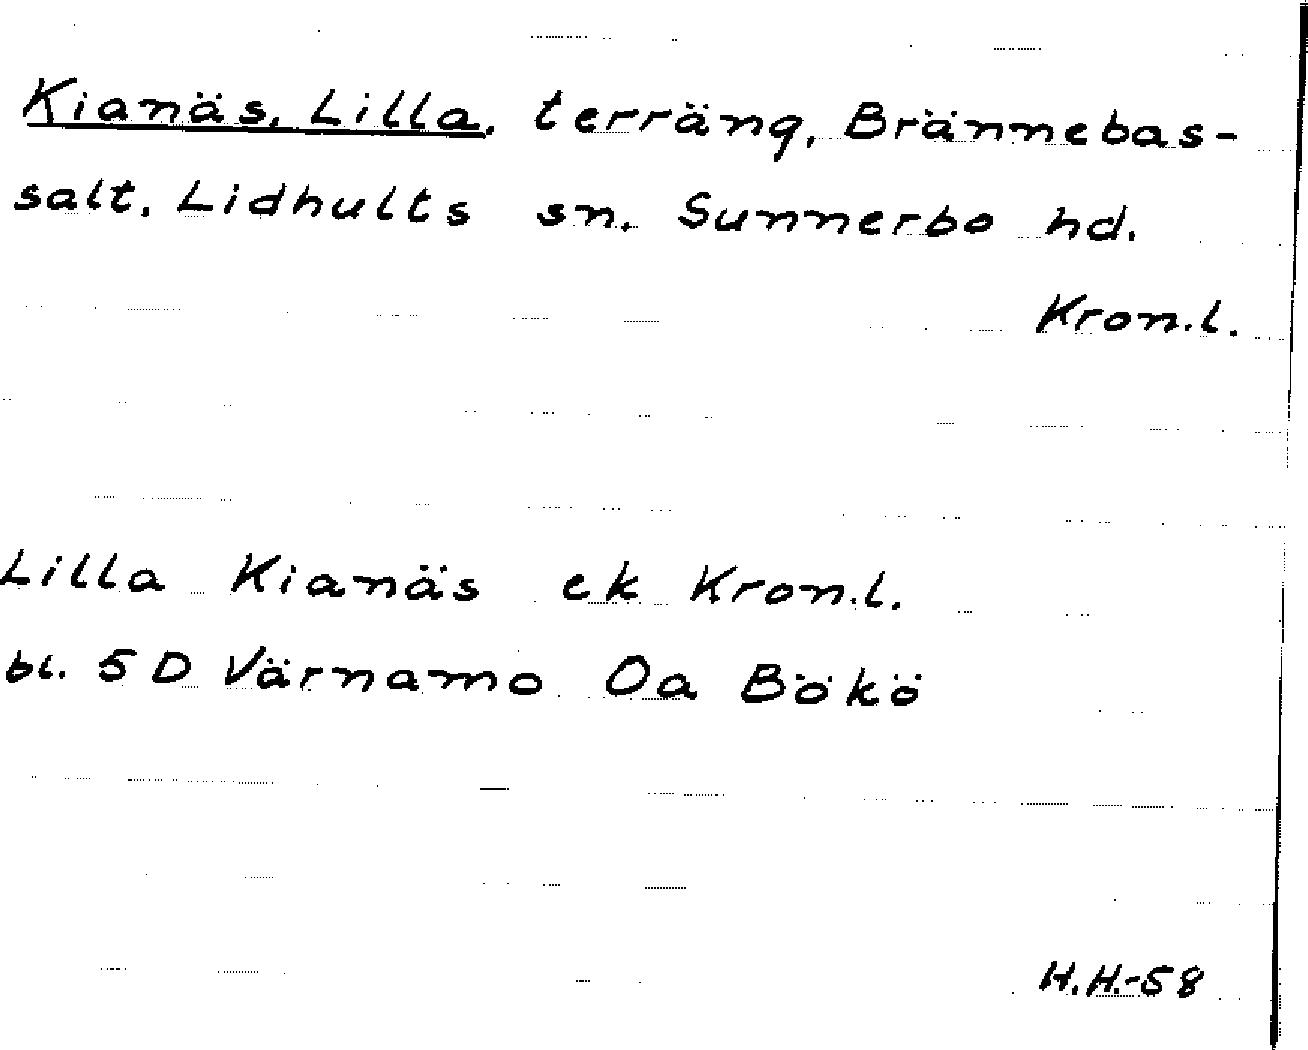 Kianäs, Lilla, terräng, Brännebas-
salt, Lidhults sn. Sunnerbo hd.
Kron.l.
Lilla Kianäs ek Kron.l.
bl. 5 D Värnamo Oa Bökö
H.H.-58